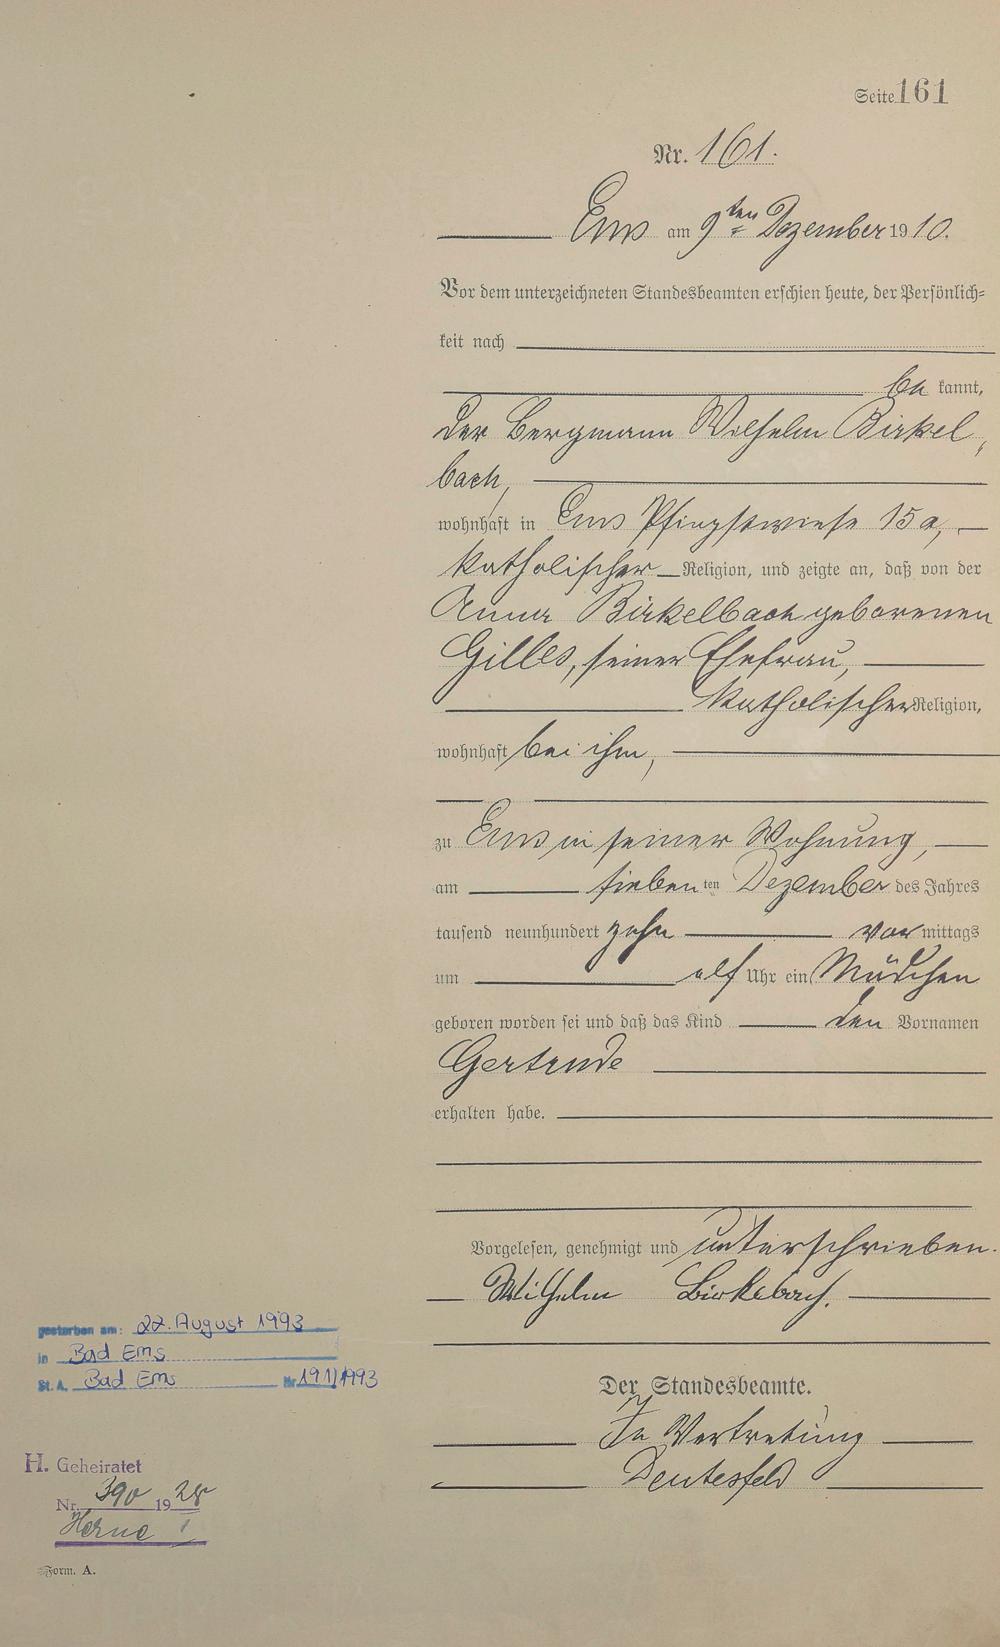 Seite 161
Nr. 161.
Ems am 9ten Dezember 1910.
Vor dem unterzeichneten Standesbeamten erschien heute, der Persönlich-
keit nach
be kannt,
der Bergmann Wilhelm Birkel,
bach,
wohnhaft in Ems Pfingstwiese 15a,
katholischer Religion, und zeigte an, daß von der
Anna Birkelbach geborenen
Gilles, seiner Ehefrau,
katholischer Religion,
wohnhaft bei ihm,
zu Ems in seiner Wohnung,
am siebenten Dezember des Jahres
tausend neunhundert zehn vormittags
um elf Uhr ein Mädchen
geboren worden sei und daß das Kind den Vornamen
Gertrude
erhalten habe.
Vorgelesen, genehmigt und unterschrieben.
Wilhelm Birkelbach.
Der Standesbeamte.
In Vertretung
Deutesfeld
gestorben am: 22. August 1993
in Bad Ems
St. A. Bad Ems Nr. 191/1993
H. Geheiratet
Nr. 390 1928
Herne I
Form. A.